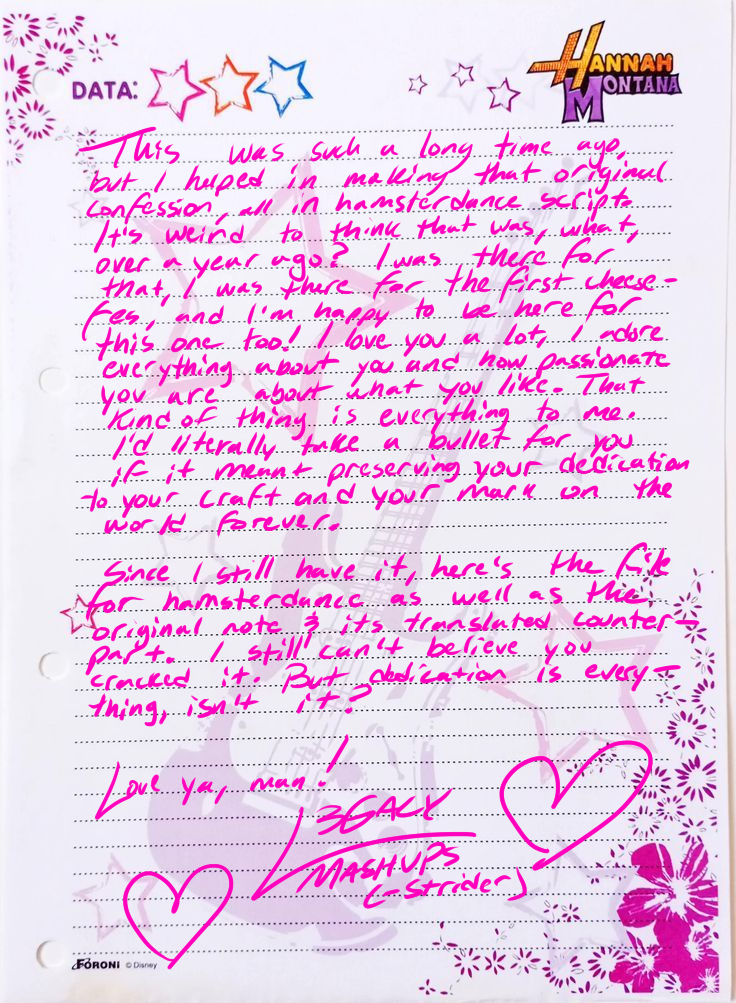 HANNAH
MONTANA
DATA:
This was such a long time ago,
but I helped in making that original
confession, all in hamsterdance script.
It's weird to think that was, what,
over a year ago? I was there for
that, I was there for the first cheese-
fes, and I'm happy to be here for
this one too! I love you a lot, I adore
everything about you and how passionate
you are about what you like. That
kind of thing is everything to me.
I'd literally take a bullet for you
if it meant preserving your dedication
to your craft and your mark on the
world forever.
Since I still have it, here's the file
for hamsterdance as well as the
original note & its translated counter-
part. I still can't believe you
cracked it. But dedication is every-
thing, isn't it?
Love ya, man!
3GALY
MASHUPS
(-Strider)
FORONI © Disney